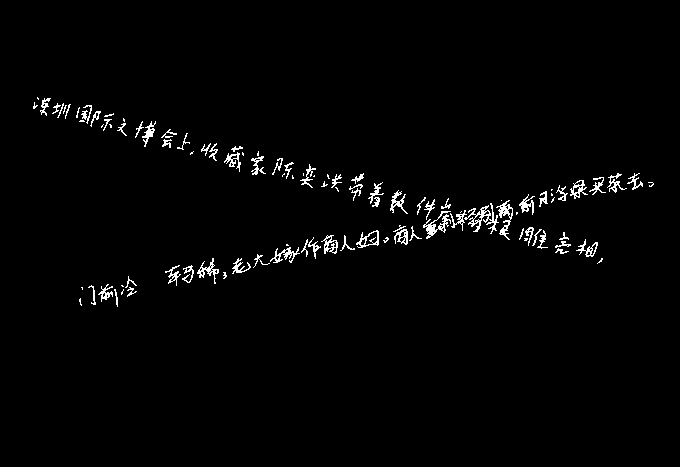 深圳国际文博会上,收藏家陈奕洪带着数件亮相,
门前冷 车马稀,老大嫁作商人妇。商人重利轻别离,前月浮梁买茶去。